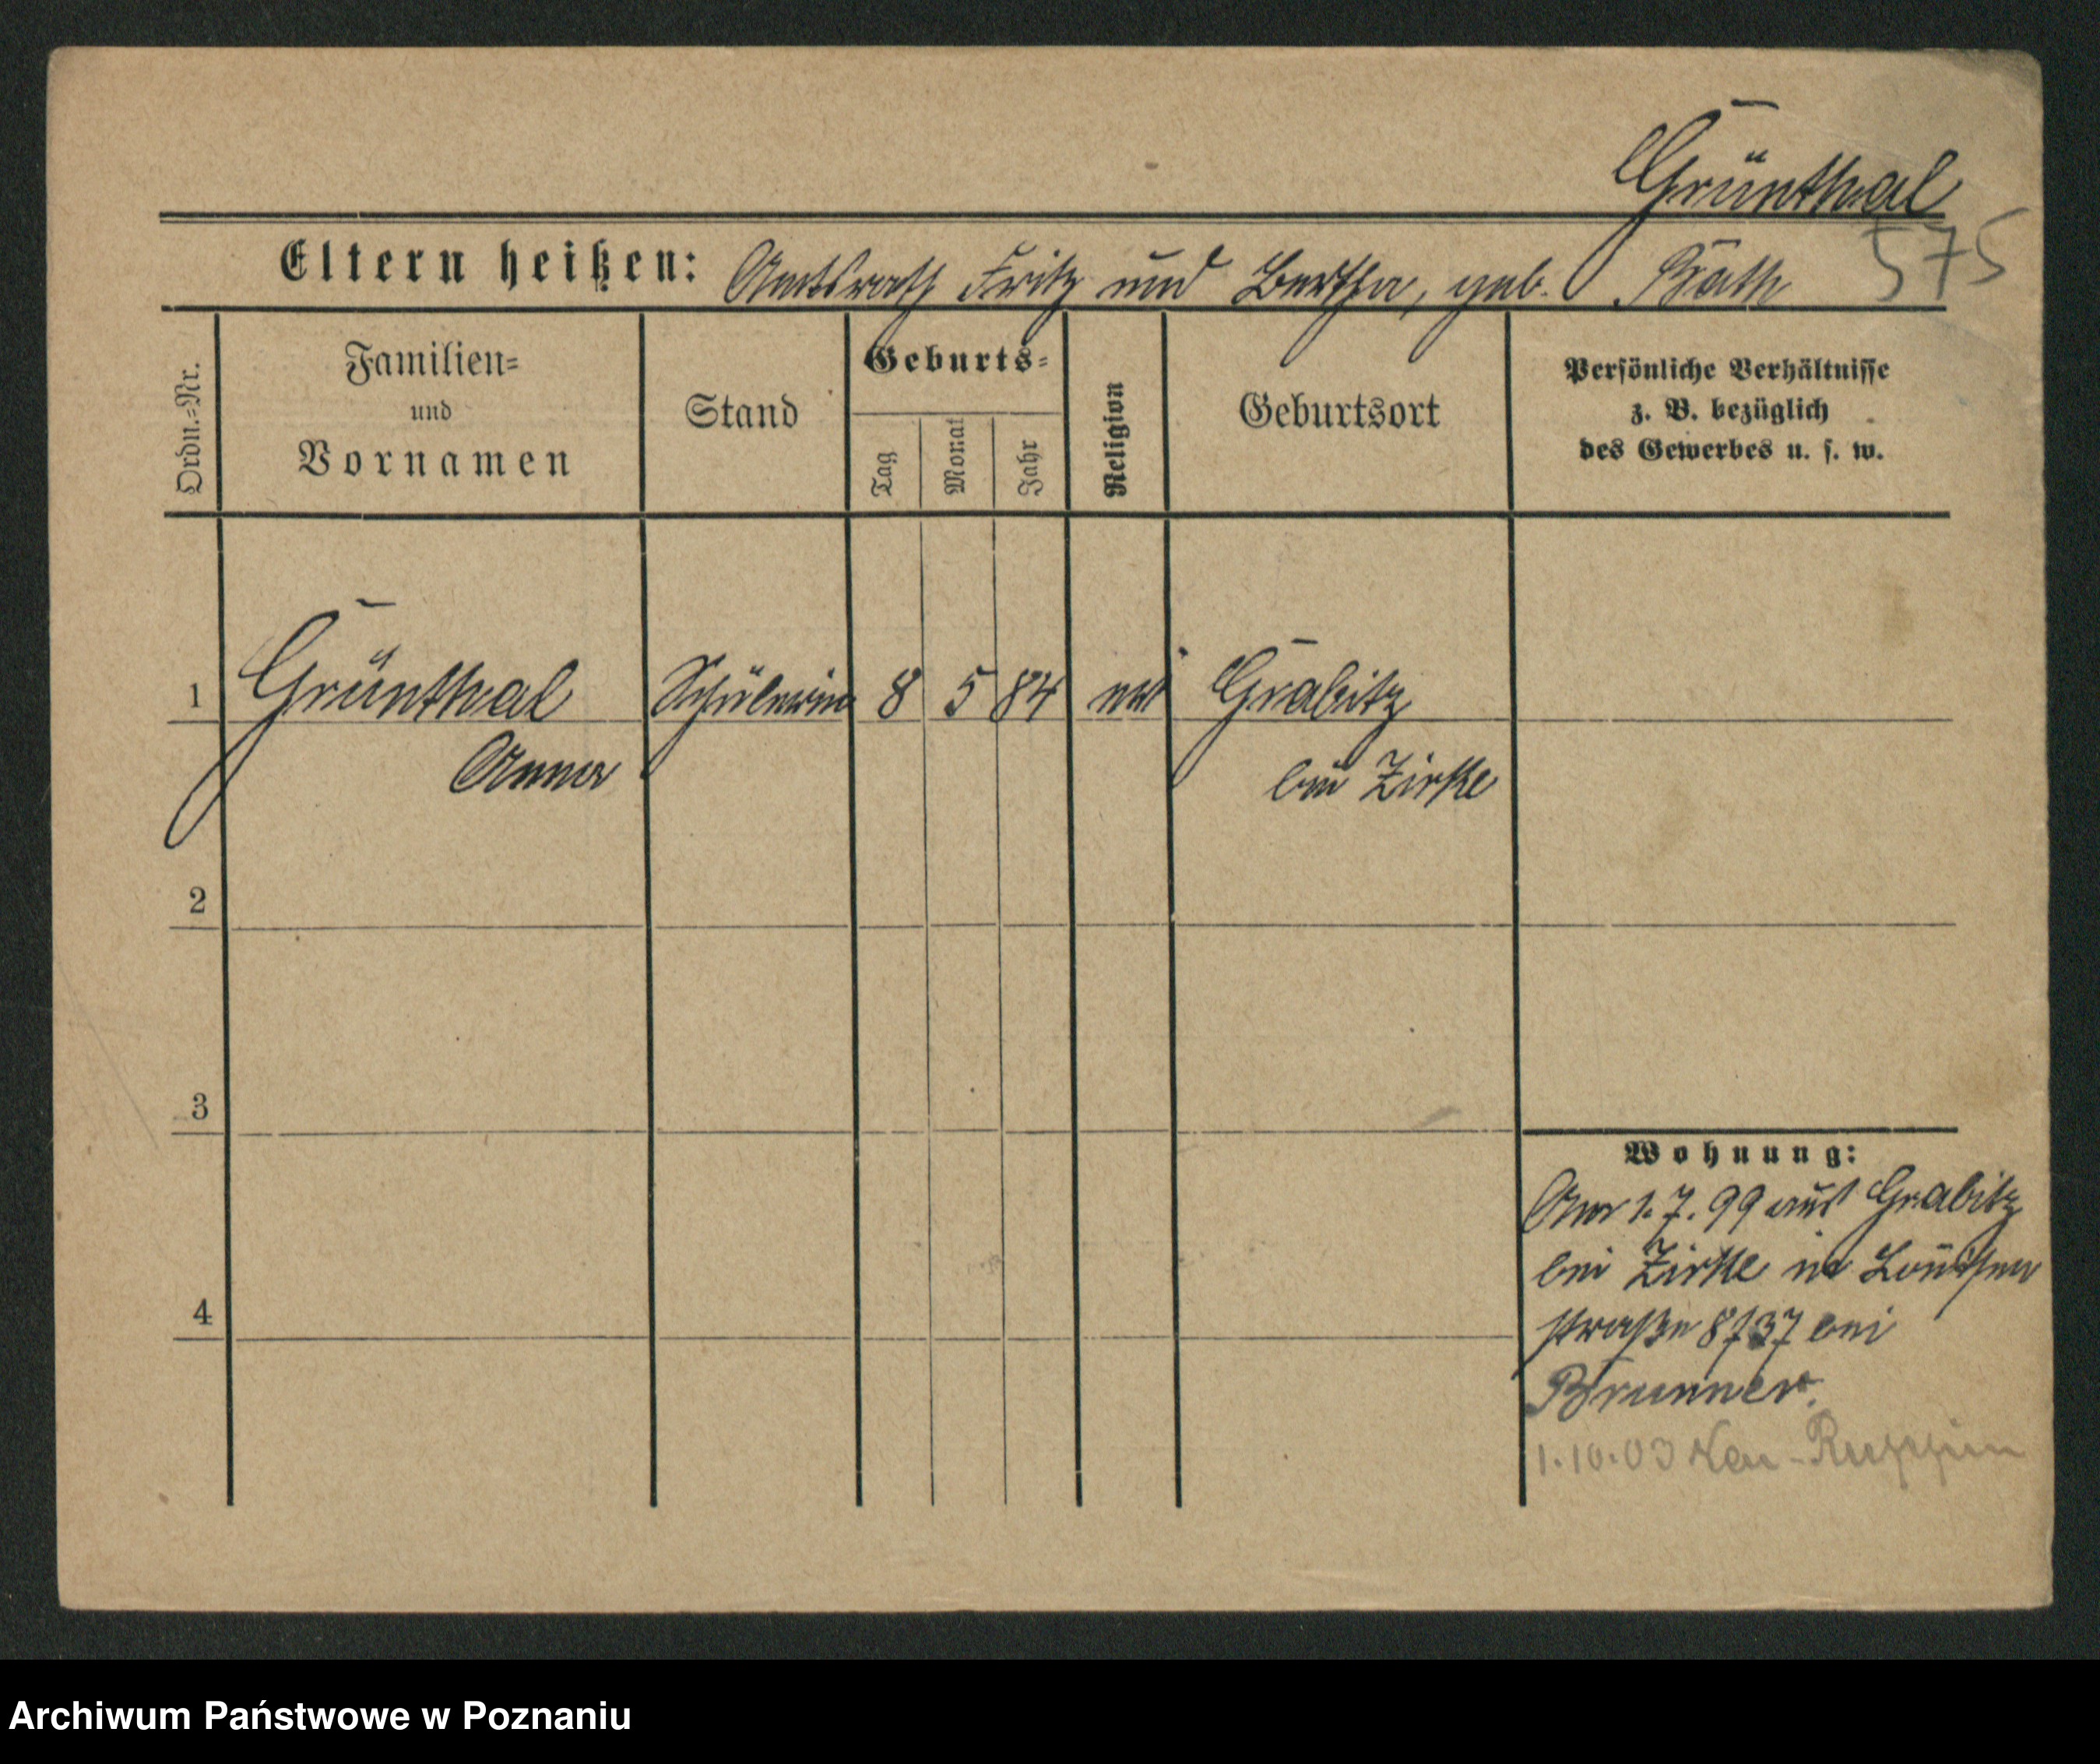 Grünthal
575
Eltern heißen: Amtsrath Fritz und Bertha, geb. Bäth
Ordn.=Nr.
Familien=
und
Vornamen
Stand
Geburts=
Tag
Monat
Jahr
Religion
Geburtsort
Persönliche Verhältnisse
z. B. bezüglich
des Gewerbes u. s. w.
1 Grünthal Schülerin 8 5 84 Grabitz
Anna bei Zirke
2
3
4
Wohnung:
Am 1.7.99 aus Grabitz
bei Zirke in Louisen
straße 8/37 bei
Brunner.
1.10.03 Neu-Ruppin
Archiwum Państwowe w Poznaniu